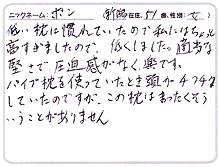 ニックネーム:ボン 新潟在住、51歳、性別:女
低い枕に慣れていたので私にはちょっと
高すぎましたので、低くしました。適当な
堅さで圧迫感がなく楽です。
パイプ枕を使っていたとき頭がチクチク
していたのですが、この枕はまったくそう
いうことがありません